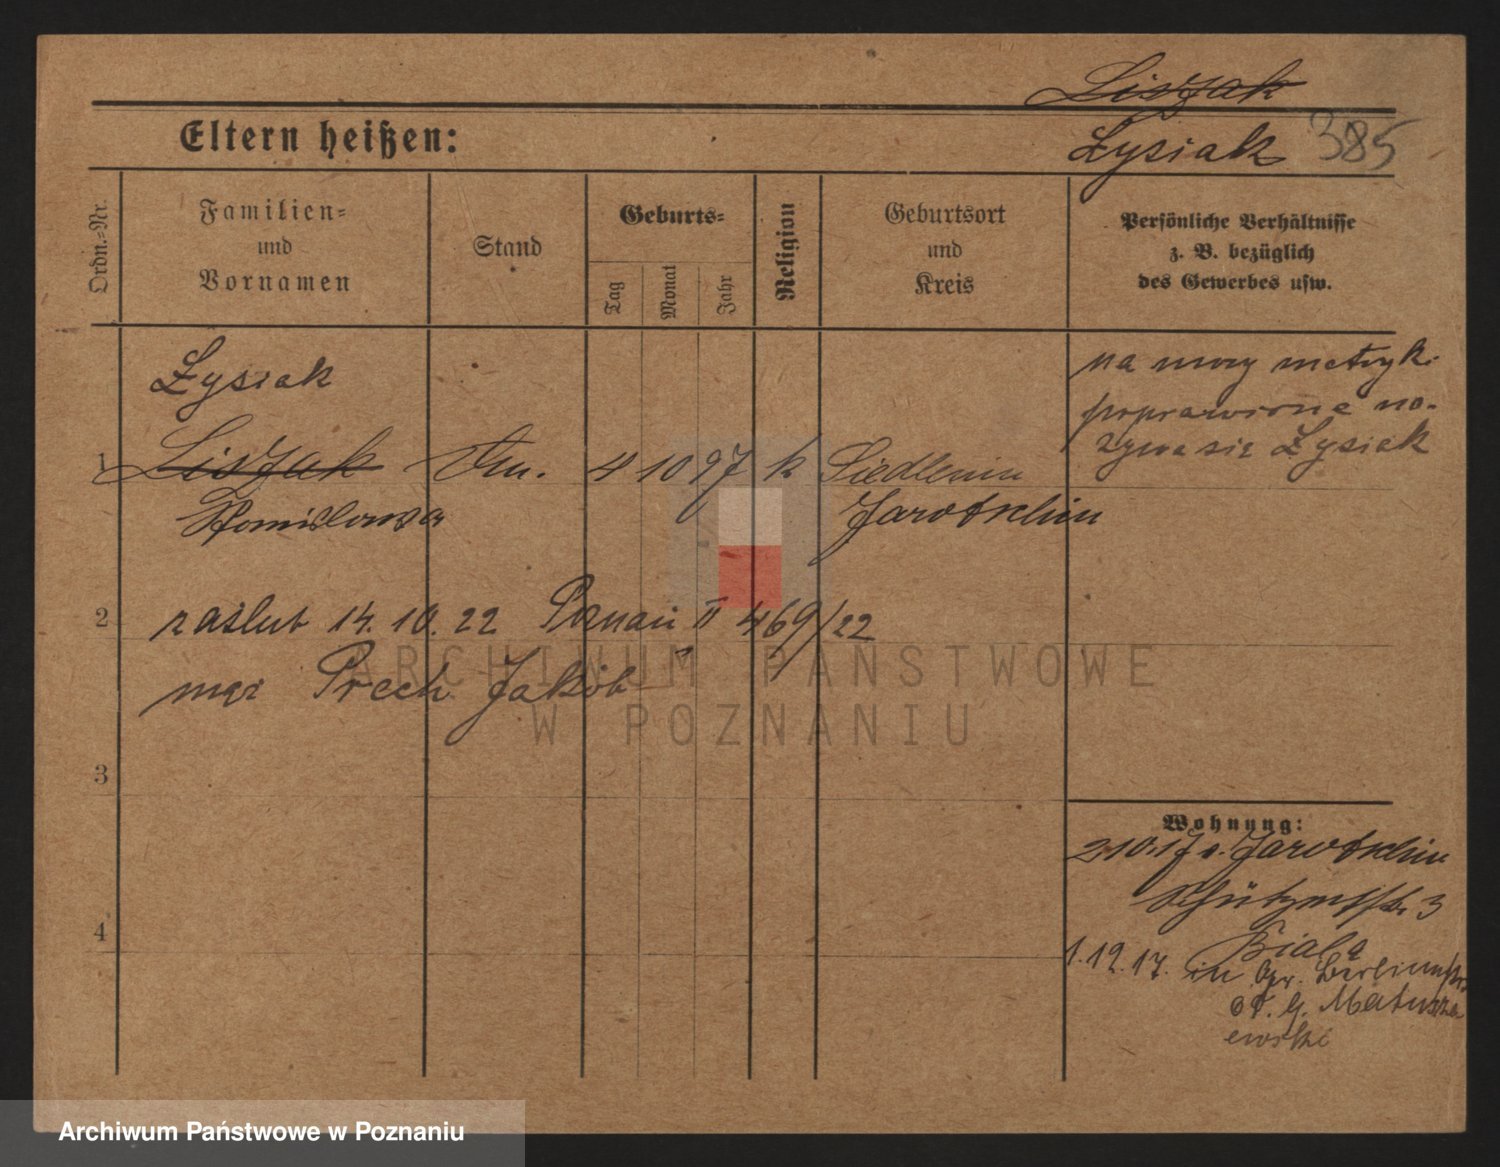 Liszak
Eltern heißen:
Łysiak 385
Ordn.=Nr.
Familien=
und
Vornamen
Stand
Geburts=
Tag
Monat
Jahr
Religion
Geburtsort
und
Kreis
Persönliche Verhältnisse
z. B. bezüglich
des Gewerbes usw.
Łysiak
1 Liszak 4 10 97 k Siedlemin
Stanisława Jarotschin
na mocy metryk.
poprawione na-
zywa się Łysiak
2 zaślub 14. 10. 22 Poznań II 469/22
mąż Prech Jakób
3
4
Wohnung:
2.10.17 v. Jarotschin
Schützenstr. 3
Biała
1.12.17. in Berlinerstr.
G. Matusza
ewski
ARCHIWUM PAŃSTWOWE
W POZNANIU
Archiwum Państwowe w Poznaniu